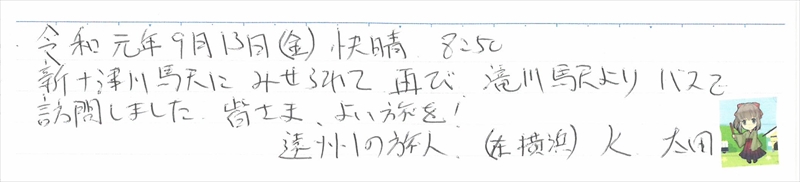 令和元年9月13日(金) 快晴 8:50
新十津川駅に みせられて 再び 滝川駅より バスで
訪問しました 皆さま、よい旅を!
遠州の旅人 (在横浜) K 太田